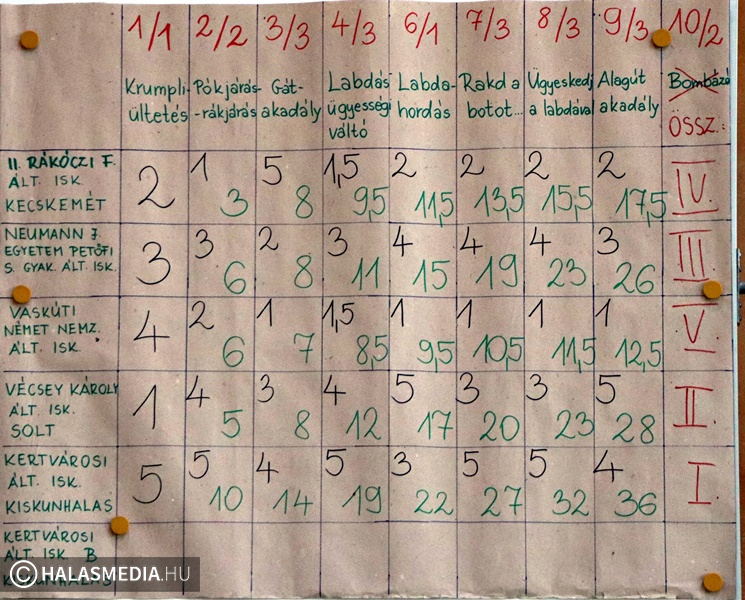 1/1 2/2 3/3 4/3 6/1 7/3 8/3 9/3 10/2
Krumpli- Pókjárás- Gát- Labdás Labda- Rakd a Ügyeskedj Alagút Bombázó
ültetés -rákjárás akadály ügyességi hordás botot... a labdával akadály ÖSSZ.:
váltó
II. RÁKÓCZI F. 1 5 1,5 2 2 2 2
ÁLT. ISK. 2 IV
KECSKEMÉT 3 8 9,5 11,5 13,5 15,5 17,5
NEUMANN J. 3 2 3 4 4 4 3
EGYETEM PETŐFI 3 III
S. GYAK. ÁLT. ISK. 6 8 11 15 19 23 26
VASKÚTI 2 1 1,5 1 1 1 1
NÉMET NEMZ. 4 V
ÁLT. ISK. 6 7 8,5 9,5 10,5 11,5 12,5
VÉCSEY KÁROLY 4 3 4 5 3 3 5
ÁLT. ISK. 1 II
SOLT 5 8 12 17 20 23 28
KERTVÁROSI 5 4 5 3 5 5 4
ÁLT. ISK. 5 I
KISKUNHALAS 10 14 19 22 27 32 36
KERTVÁROSI
ÁLT. ISK. B
©HALASMEDIA.HU